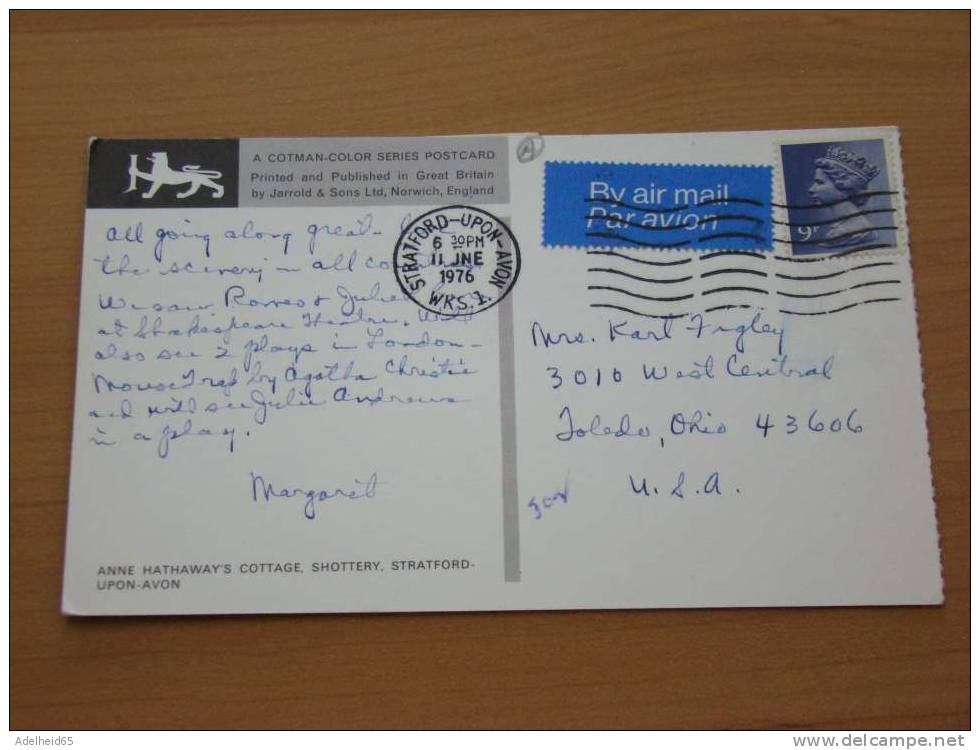 A COTMAN-COLOR SERIES POSTCARD
Printed and Published in Great Britain
by Jarrold & Sons Ltd, Norwich, England
all going along great -
the scenery - all
We saw Romeo & Juliet
at Shakespeare Theatre. Will
also see 2 plays in London -
Mouse Trap by Agatha Christie
and will see Julie Andrews
in a play.
Margaret
ANNE HATHAWAY'S COTTAGE, SHOTTERY, STRATFORD-
UPON-AVON
STRATFORD-UPON-AVON
6 30PM
11 JNE
1976
WKS. 1.
By air mail
Par avion
9P
Mrs. Kart Figley
3010 West Central
Toledo, Ohio 43606
U.S.A.
Adelheid65
www.delcampe.net